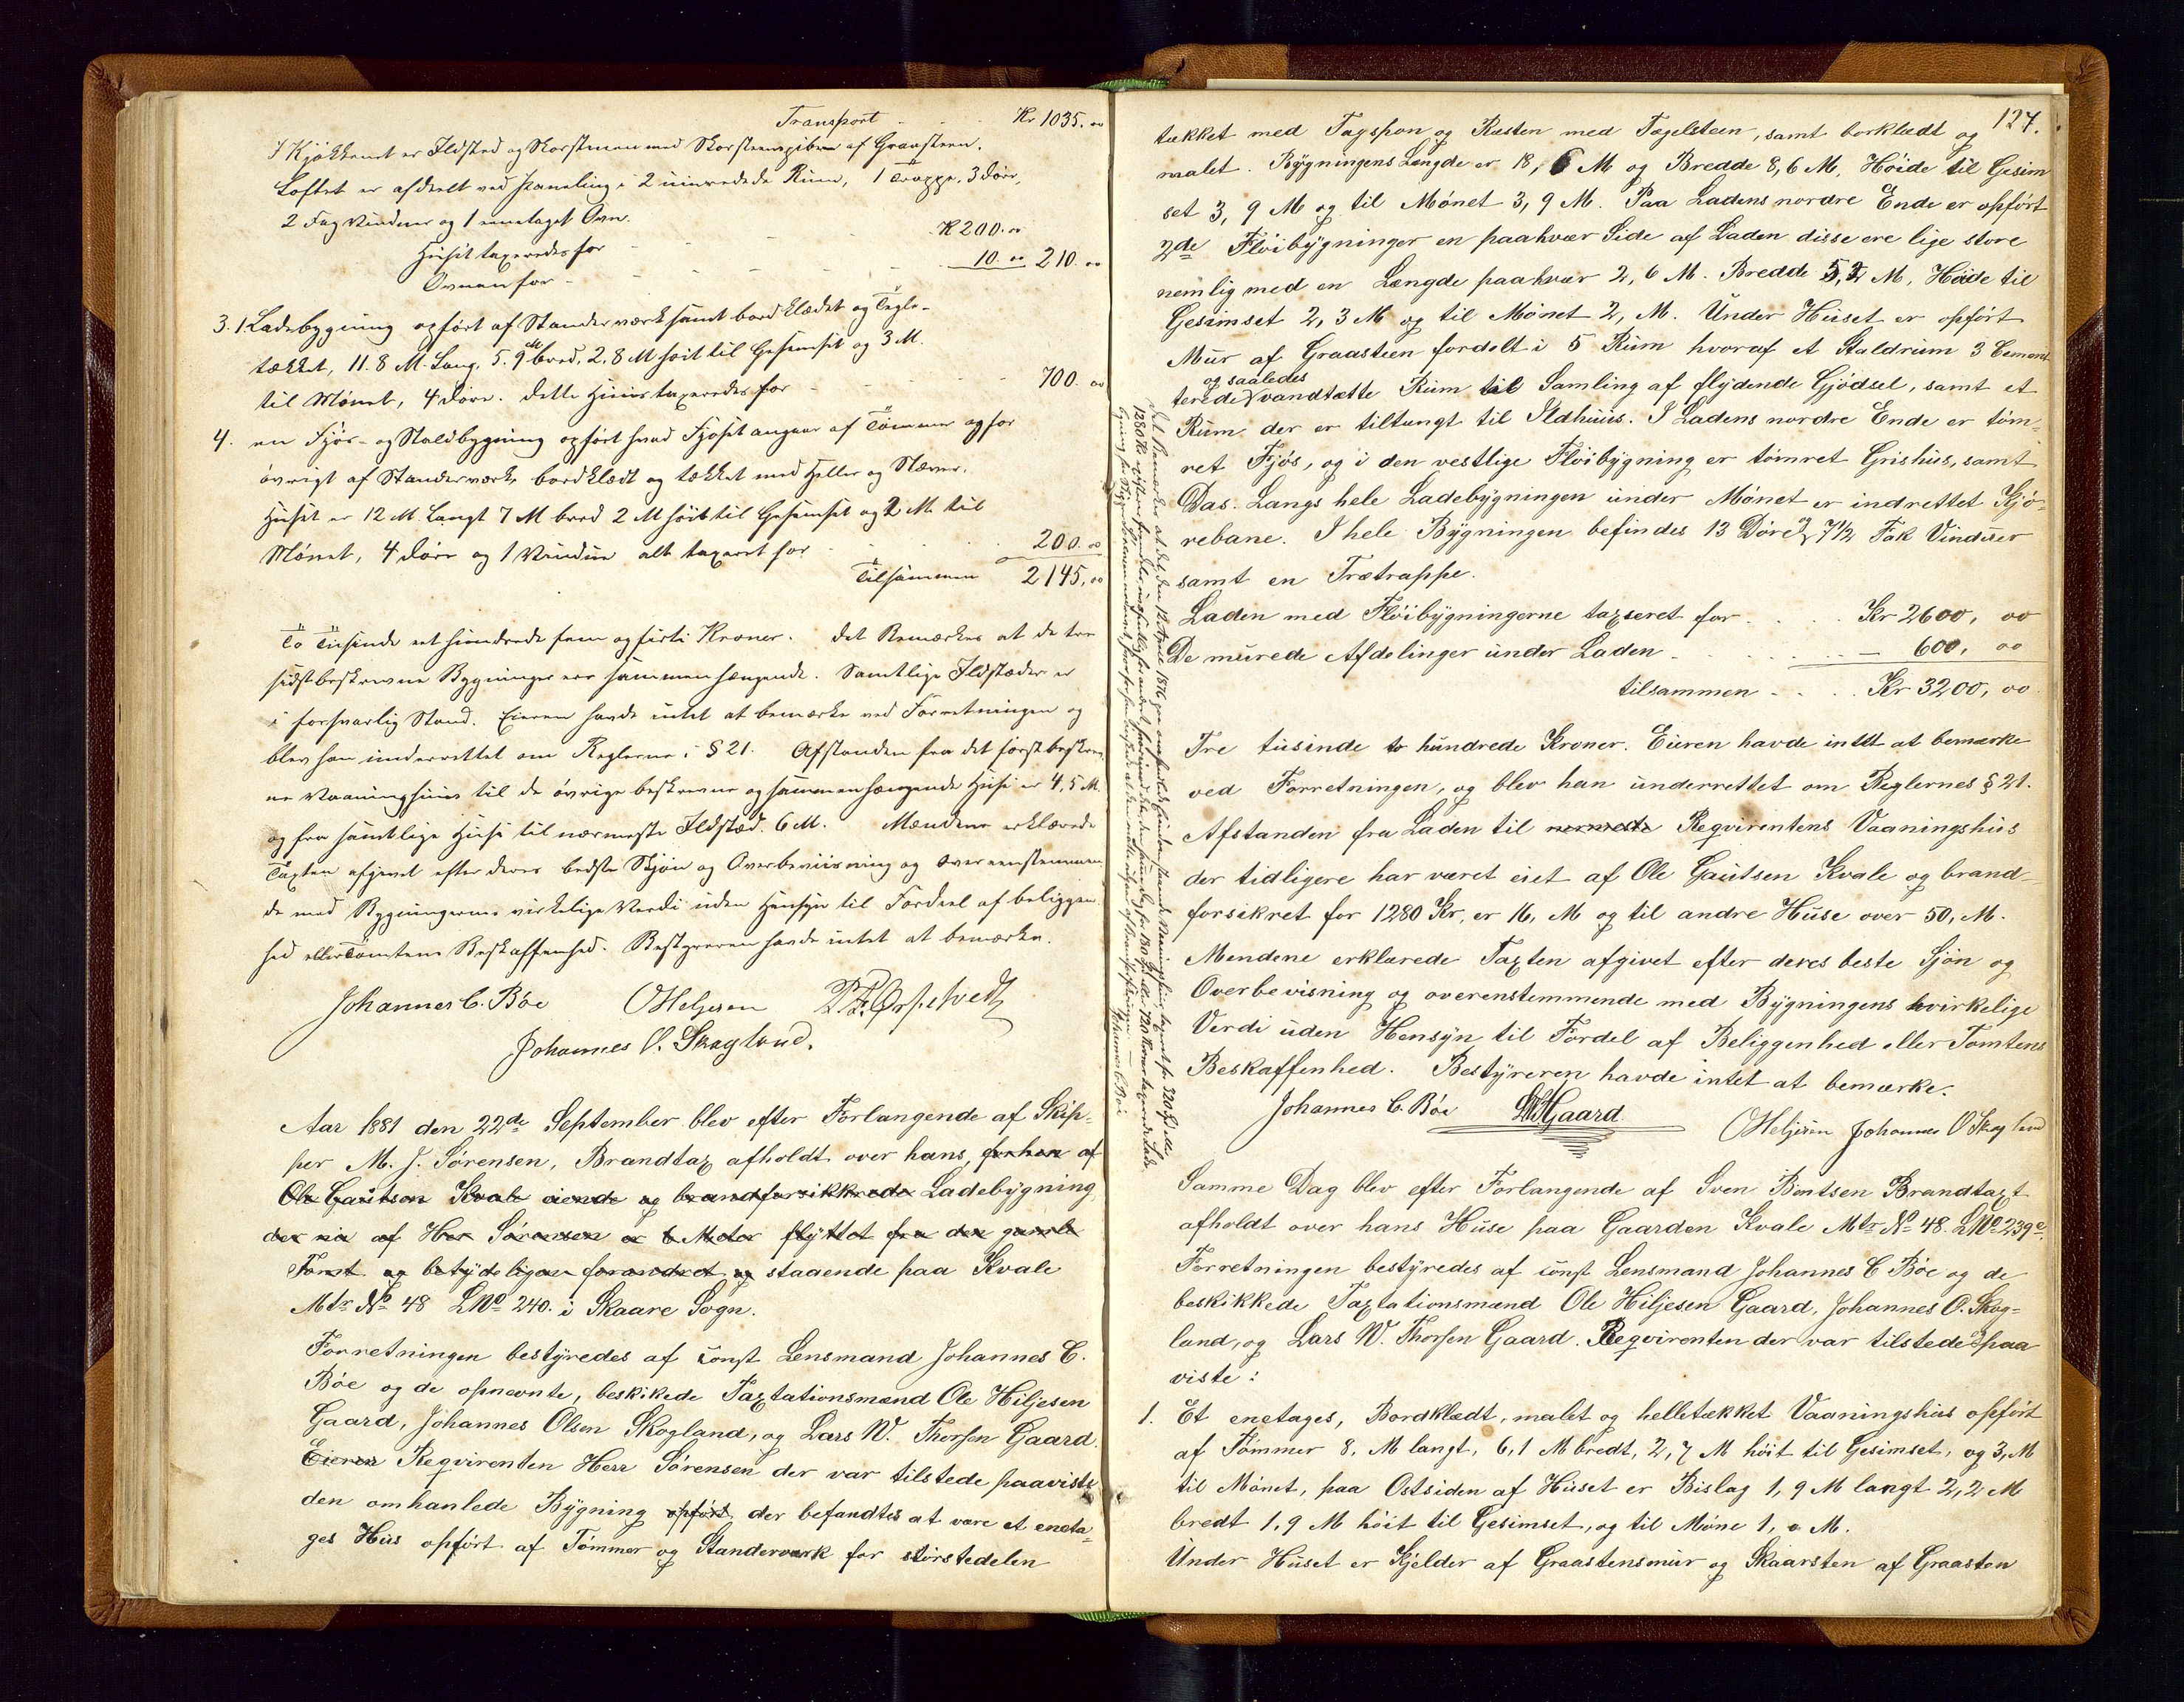 Transport . . . Kr 1035. 00
I Kjøkkenet er Ildsted og Skorsteen med Skorsteenspibe af Graasteen.
Loftet er afdeelt ved Paneling i 2 uinredede Rum, 1 Trappe, 3 Døre,
2 Fag Vinduer og 1 eenetaget Ovn.
Huset taxeredes for - - - K 200. 00
Ovnen for - - - 10. 00 210. 00
3. 1 Ladebygning opført af Standerværk samt bordklædet og Tegl-
tækket, 11.8 M. Lang, 5.9 M bred, 2.8 M høit til Gesimset og 3 M.
til Mønet, 4 Døre. Dette Huus taxeredes for - - - 700. 00
4. en Fjøs- og Staldbygning opført hvad Fjøset angaar af Tømmer og for
øvrigt af Standerværk, bordklædt og tækket med Heller og Næver.
Huset er 12 M. Langt 7 M bred 2 M høit til Gesimset og 2 M. til
Mønet, 4 Døre og 1 Vindue alt taxeret for - - - 200. 00
Tilsammen 2145, 00
To Tusinde eet hundrede fem og firti Kroner. Det Bemærkes at de tre
sidstbeskrevne Bygninger ere sammenhængende. Samtlige Ildstæder er
i forsvarlig Stand. Eieren havde intet at bemærke ved Forretningen og
blev han underrettet om Reglerne i § 21. Afstanden fra det først beskrev-
ne Vaaningshuus til de øvrige beskrevne og sammenhængende Huse er 4,5 M.
og fra samtlige Huse til nærmeste Ildstæd. 6 M. Mændene erklærede
Taxten afgivet efter deres bedste Skjøn og Overbeviisning og overeenstemmen
de med Bygningernes virkelige Verdi uden Hensyn til Fordeel af beliggen-
hed eller Tomtens Beskaffenhed. Bestyreren havde intet at bemærke.
Johannes C. Bøe OHeljesen
Johannes O. Skogland.
Aar 1881 den 22de September blev efter Forlangende af Skip-
per M. J. Sørensen, Brandtax afholdt over hans, forhen af
Ole Gautsen Kvale eiende og brandforsikkrede Ladebygning,
der nu af Her Sørensen er 6 Meter flyttet fra den gamle
Tomt og betydeligen forandret og staaende paa Kvale
Mtr No 48 LNo 240. i Skaare Sogn.
Forretningen bestyredes af const Lensmand Johannes C.
Bøe og de opnevnte, beskikede Taxtationsmænd Ole Hiljesen
Gaard, Johannes Olsen Skogland, og Lars W. Thorsen Gaard.
Eieren Reqvirenten Herr Sørensen der var tilstede paaviste
den omhanlede Bygning opført der befandtes at være et eneta-
ges Hus opført af Tømmer og Standerværk for størstedelen
127.
tækket med Tagspon og Resten med Tægelsteen, samt borklædt og
malet. Bygningens Længde er 18,6 M og Bredde 8,6 M, Høide til Gesim
set 3,9 M og til Mønet 3,9 M. Paa Ladens nordre Ende er opført
2de Fløibygninger en paahvær Side af Laden disse ere lige store
nemlig med en Længde paahvær 2,6 M. Bredde 5,2 M, Høide til
Gesimset 2,3 M og til Mønet 2, M. Under Huset er opført
Mur af Graasteen fordelt i 5 Rum hvoraf et Staldrum 3 Cemen-
og saaledes
terede vandtætte Rum til Samling af flydende Gjødsel, samt et
Rum der er tiltængt til Ildhuus. I Ladens nordre Ende er tøm-
ret Fjøs, og i den vestlige Fløibygning er tømret Grishus, samt
Das. Langs hele Ladebygningen under Mønet er indrettet Kjø-
rebane. I hele Bygningen befindes 13 Døre og 7½ Fak Vinduer
samt en Trætrappe.
Laden med Fløibygningerne taxseret for . . . . Kr 2600, 00
De murede Afdelinger under Laden - . . . . - 600, 00
tilsammen - . . . Kr 3200, 00.
Tre tusinde to hundrede Kroner. Eieren havde intdt at bemærke
ved Forretningen, og blev han underrettet om Reglernes § 21.
Afstanden fra Laden til nermeste Reqvirentens Vaaningshus
der tidligere har været eiet af Ole Gautsen Kvale og brand-
forsikret for 1280 Kr, er 16, M og til andre Huse over 50, M.
Mendene erklærede Taxten afgivet efter deres beste Sjøn og
Overbevisning og overenstemmende med Bygningens hvirkelige
Verdi uden Hensyn til Fordel af Beliggenhed eller Tomtens
Beskaffenhed. Bestyreren havde intet at bemærke.
Johannes C. Bøe LWGaard. OHeljesen Johannes O Skogland
Samme Dag blev efter Forlangende af Sven Bentsen Brandtaxt
afholdt over hans Huse paa Gaarden Kvale Mtr No 48. LNo 239c.
Forretningen bestyredes af const Lensmand Johannes C Bøe og de
beskikkede Taxtationsmænd Ole Hiljesen Gaard, Johannes O. Skog-
land, og Lars W. Thorsen Gaard. Reqvirenten der var tilstede paa
viste:
1. Et enetages, Bordklædt, malet og helletækket Vaaningshus opført
af Tømmer 8, M langt, 6,1 M bredt, 2,7 M høit til Gesimset, og 3, M
til Mønet, paa Ostsiden af Huset er Bislag 1,9 M langt 2,2 M
bredt 1,9 M høit til Gesimset, og til Møne 1,0 M.
Under Huset er Kjelder af Graastensmur og Skaarsten af Graasten